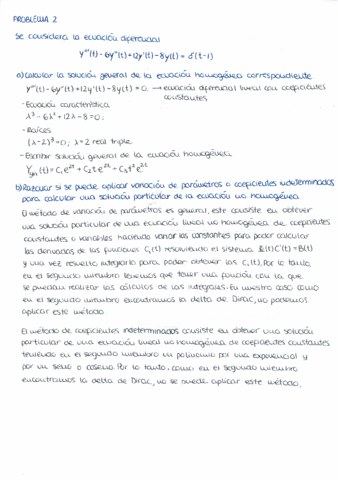 PROBLEMA 2
Se considera la ecuación diferencial
y'''(t) - 6y''(t) + 12y'(t) - 8y(t) = δ(t-1)
a) Calcular la solución general de la ecuación homogénea correspondiente
y'''(t) - 6y''(t) + 12y'(t) - 8y(t) = 0 → ecuación diferencial lineal con coeficientes
constantes
- Ecuación característica
λ³ - 6λ² + 12λ - 8 = 0;
- Raíces
(λ-2)³ = 0; λ = 2 real triple.
- Escribir solución general de la ecuación homogénea
(t) = C₁e²ᵗ + C₂te²ᵗ + C₃t²e²ᵗ
b) Razonar si se puede aplicar variación de parámetros o coeficientes indeterminados
para calcular una solución particular de la ecuación no homogénea
El método de variación de parámetros es general, este consiste en obtener
una solución particular de una ecuación lineal no homogénea de coeficientes
constantes o variables haciendo variar las constantes para poder calcular
las derivadas de las funciones Cᵢ(t) resolviendo el sistema (t)C'(t) = B(t)
y una vez resuelto integrarlo para poder obtener las Cᵢ(t). Por lo tanto,
en el segundo miembro tenemos que tener una función con la que
se puedan realizar los cálculos de las integrales. En nuestro caso como
en el segundo miembro encontramos la delta de Dirac, no podemos
aplicar este método.
El método de coeficientes indeterminados consiste en obtener una solución
particular de una ecuación lineal no homogénea de coeficientes constantes
teniendo en el segundo miembro un polinomio por una exponencial y
por un seno o coseno. Por lo tanto, como en el segundo miembro
encontramos la delta de Dirac, no se puede aplicar este método.